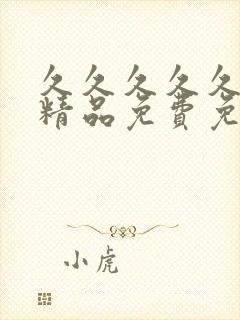 久久久久久
精品免费免
小虎